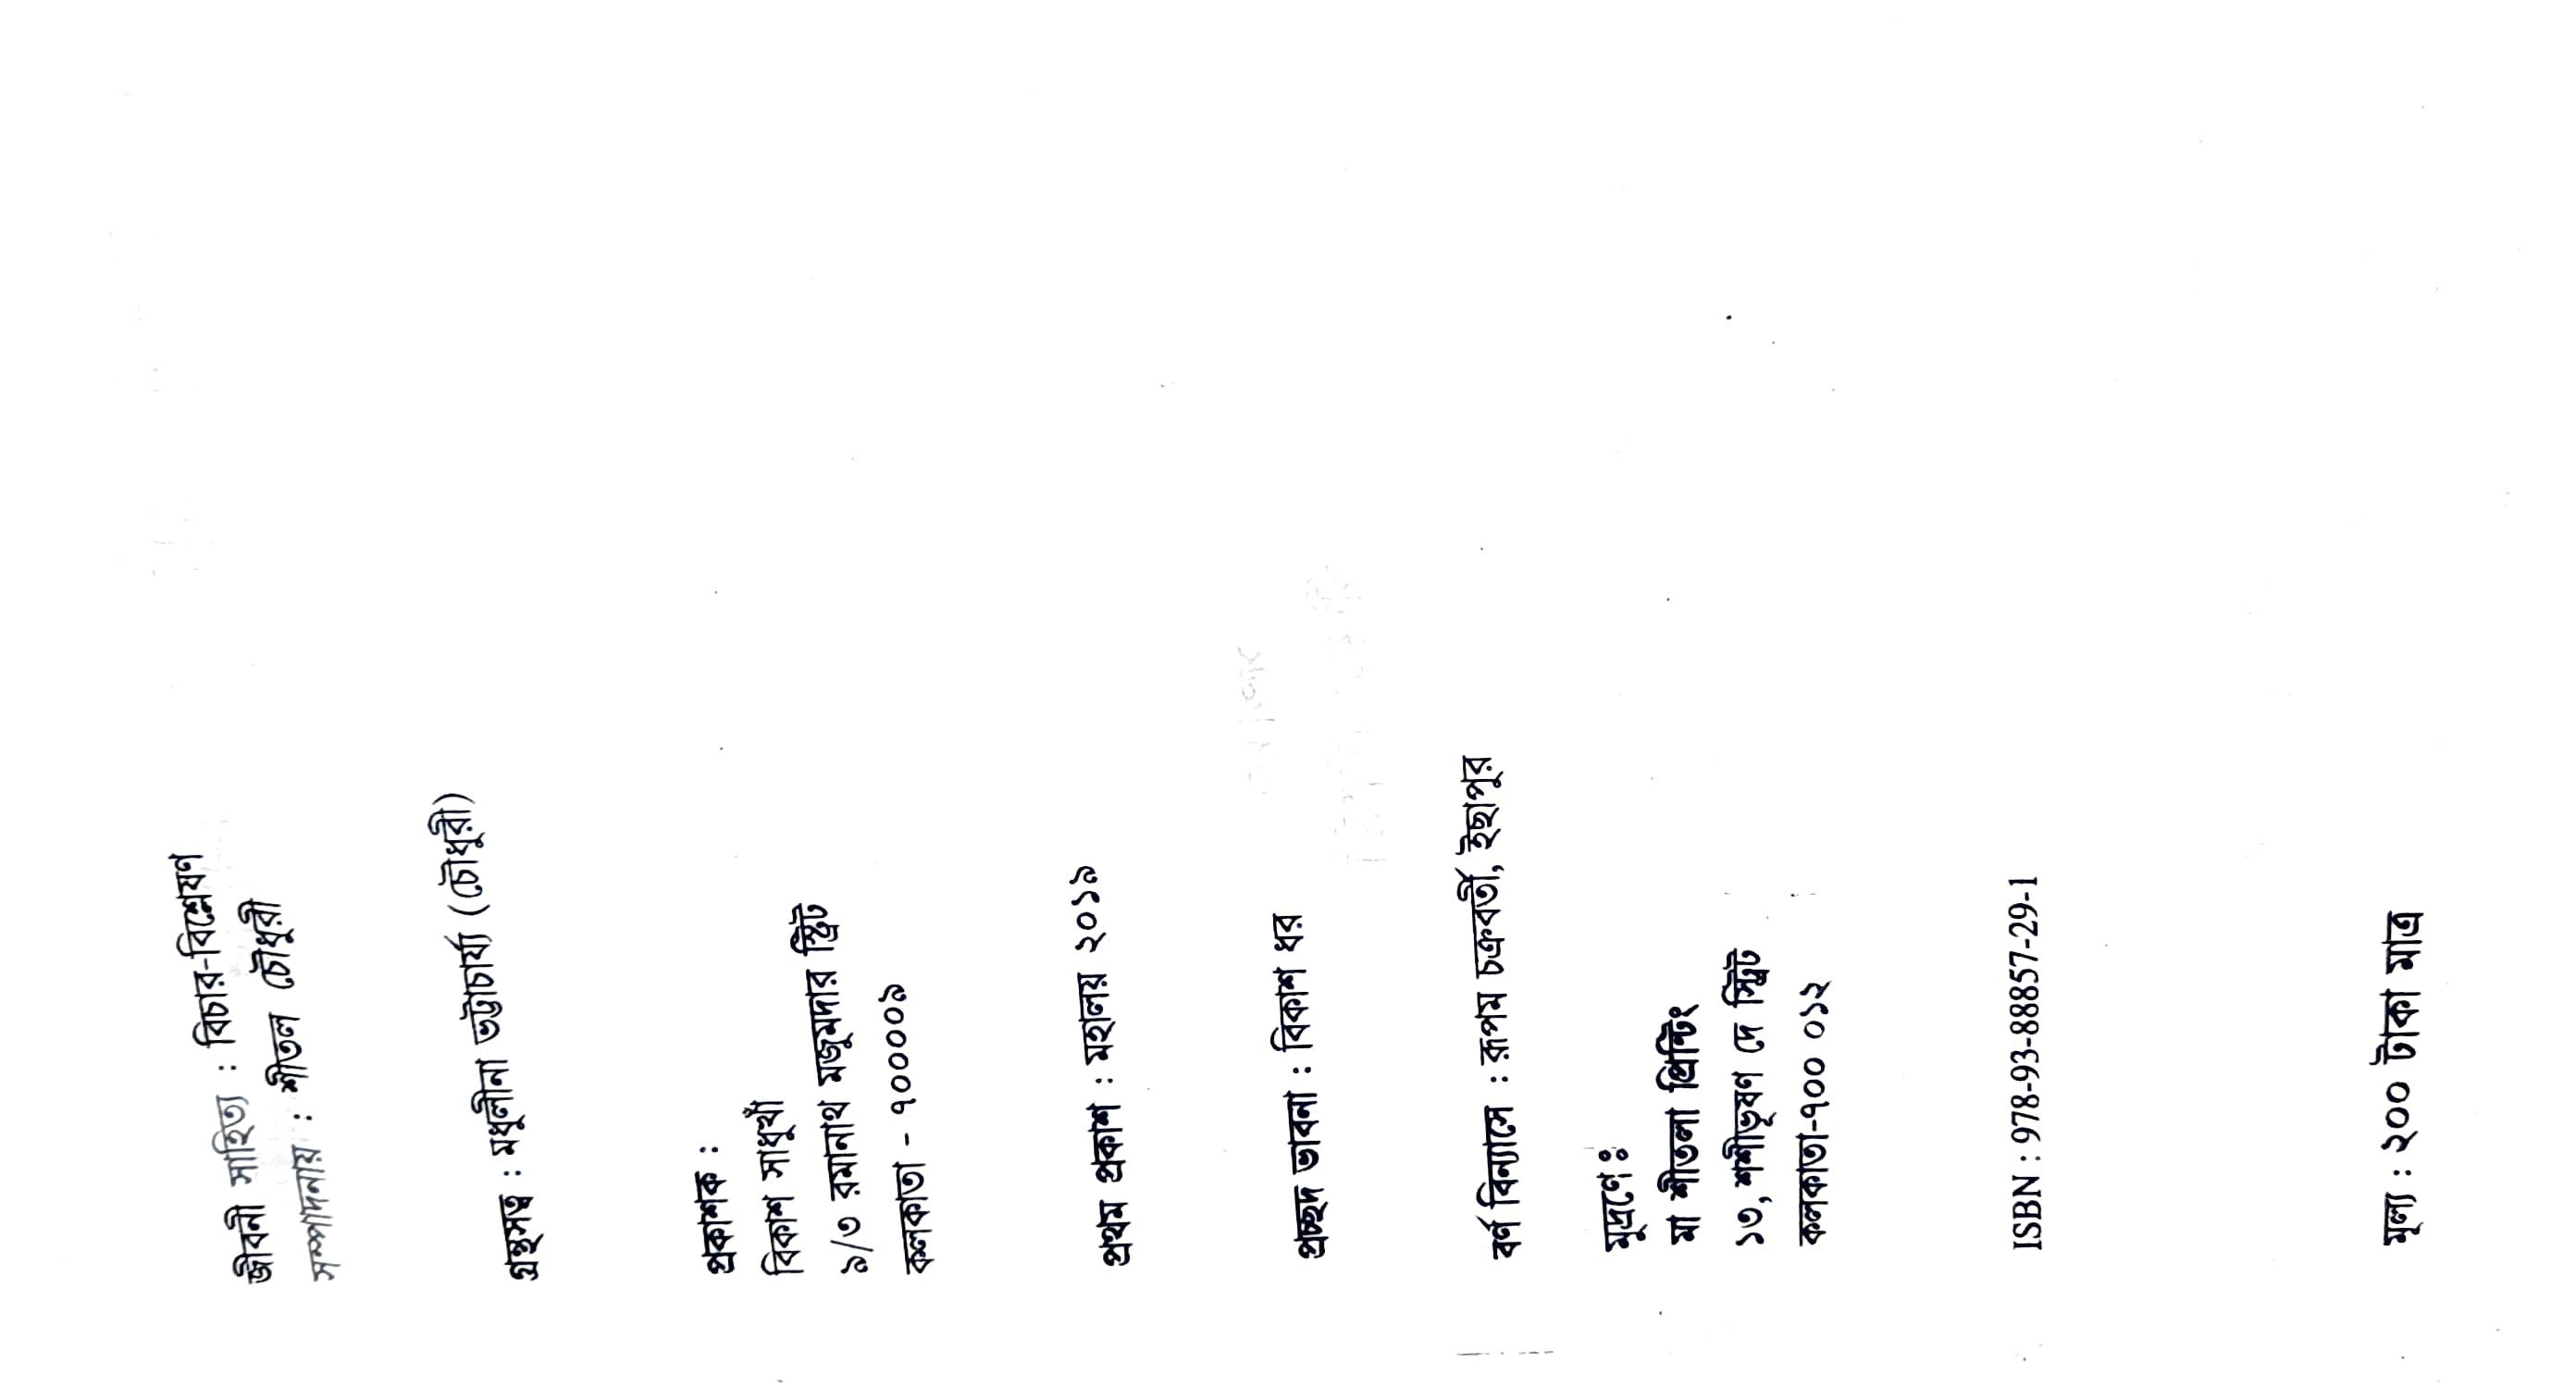 জীবনী সাহিত্য : বিচার-বিশ্লেষণ
সম্পাদনায় : শীতল চৌধুরী
গ্রন্থসত্ব : মধুলীনা ভট্টাচার্য্য (চৌধুরী)
প্রকাশক :
বিকাশ সাধুখাঁ
৯/৩ রমানাথ মজুমদার স্ট্রিট
কলকাতা - ৭০০০০৯
প্রথম প্রকাশ : মহালয় ২০১৯
প্রচ্ছদ ভাবনা : বিকাশ ধর
বর্ণ বিন্যাসে : রূপম চক্রবর্তী, ইছাপুর
মুদ্রণে ঃ
মা শীতলা প্রিন্টিং
১৩, শশীভূষণ দে স্ট্রিট
কলকাতা-৭০০ ০১২
ISBN : 978-93-88857-29-1
মূল্য : ২০০ টাকা মাত্র